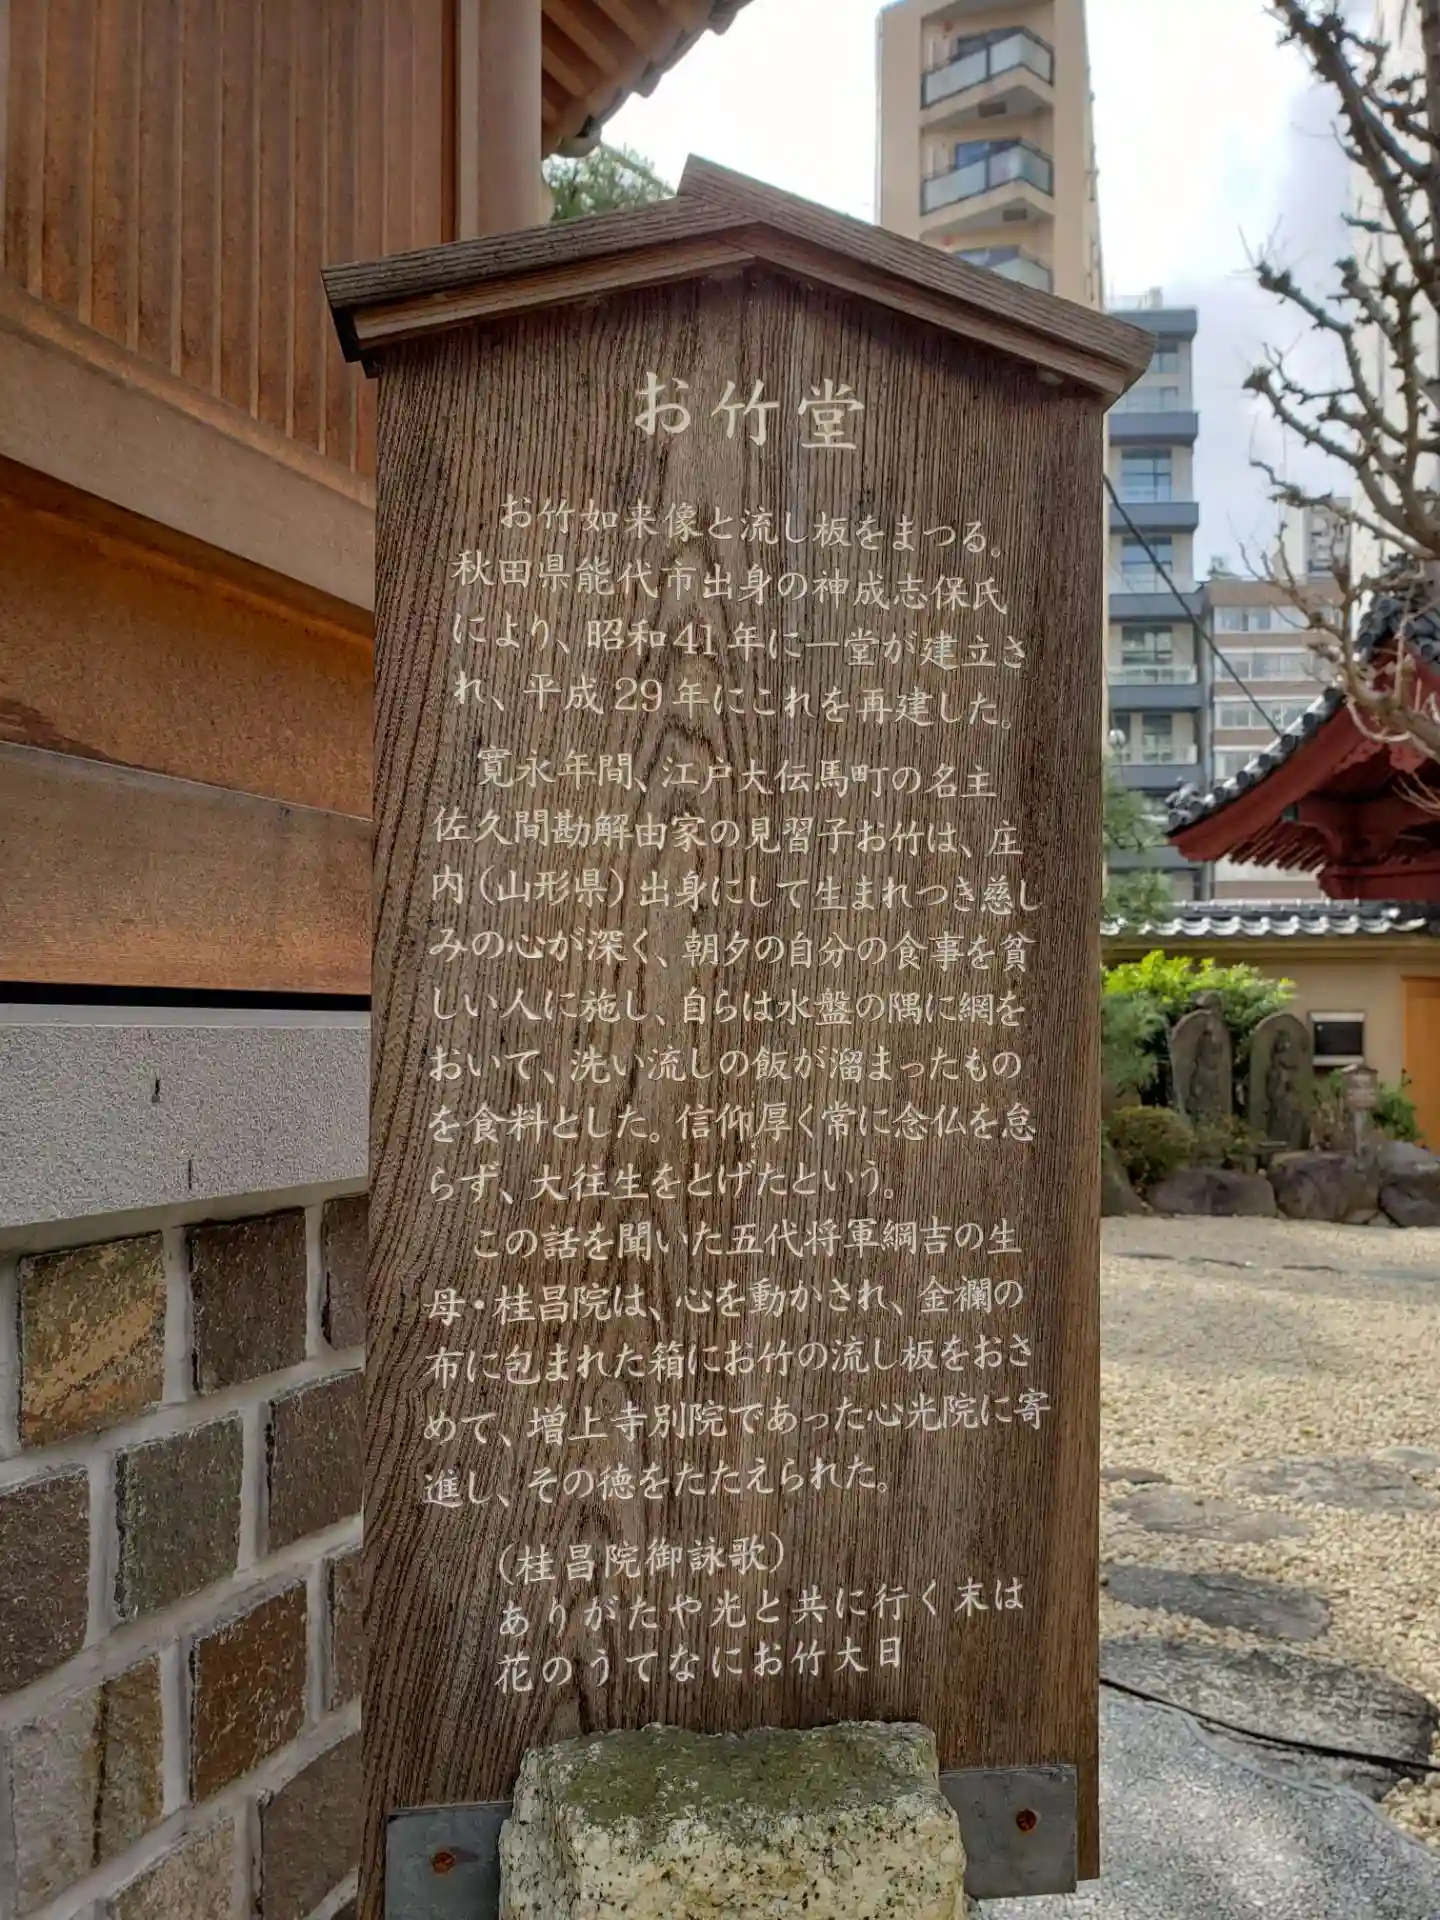 お竹堂
お竹如来像と流し板をまつる。
秋田県能代市出身の神成志保氏
により、昭和41年に一堂が建立さ
れ、平成29年にこれを再建した。
寛永年間、江戸大伝馬町の名主
佐久間勘解由家の見習子お竹は、庄
内（山形県）出身にして生まれつき慈し
みの心が深く、朝夕の自分の食事を貧
しい人に施し、自らは水盤の隅に網を
おいて、洗い流しの飯が溜まったもの
を食料とした。信仰厚く常に念仏を怠
らず、大往生をとげたという。
この話を聞いた五代将軍綱吉の生
母・桂昌院は、心を動かされ、金襴の
布に包まれた箱にお竹の流し板をおさ
めて、増上寺別院であった心光院に寄
進し、その徳をたたえられた。
（桂昌院御詠歌）
ありがたや光と共に行く末は
花のうてなにお竹大日